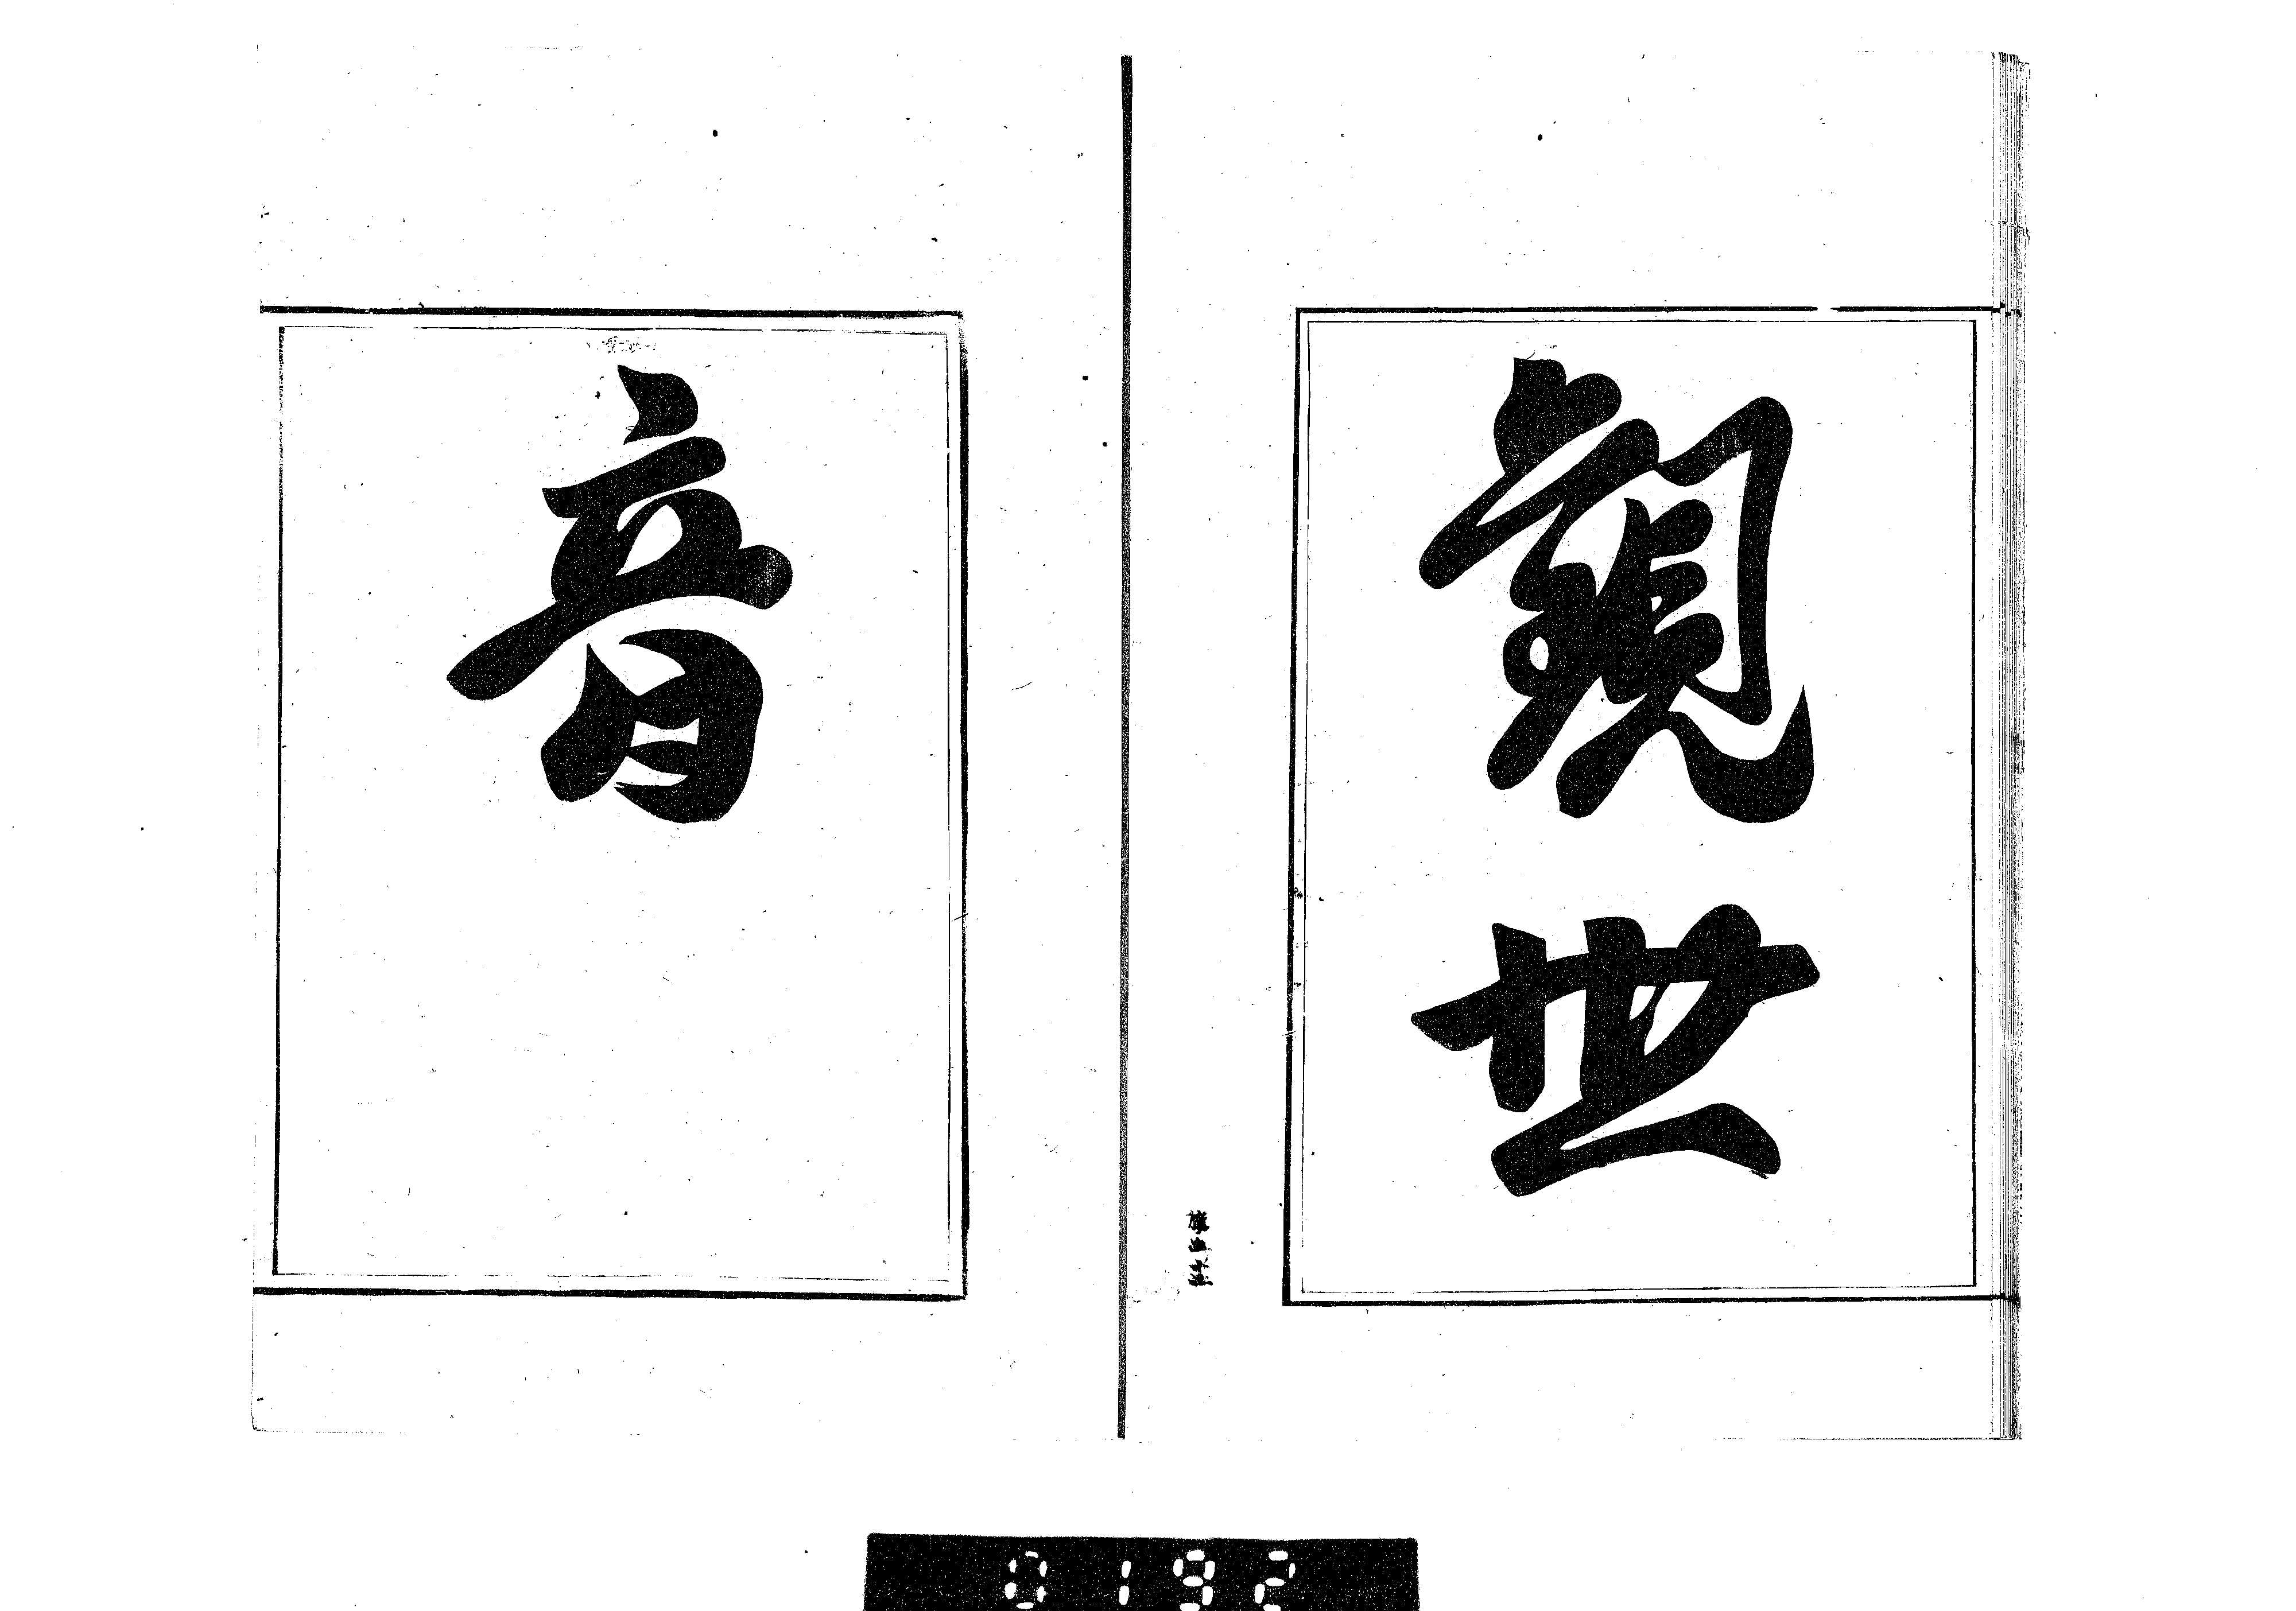 觀世
音
0192